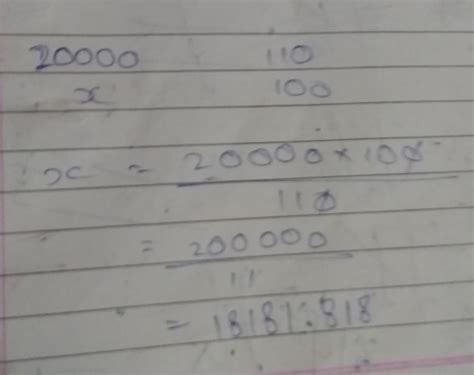 20000 110
x 100
x = 20000 × 100
110
= 200000
11
= 18181.818